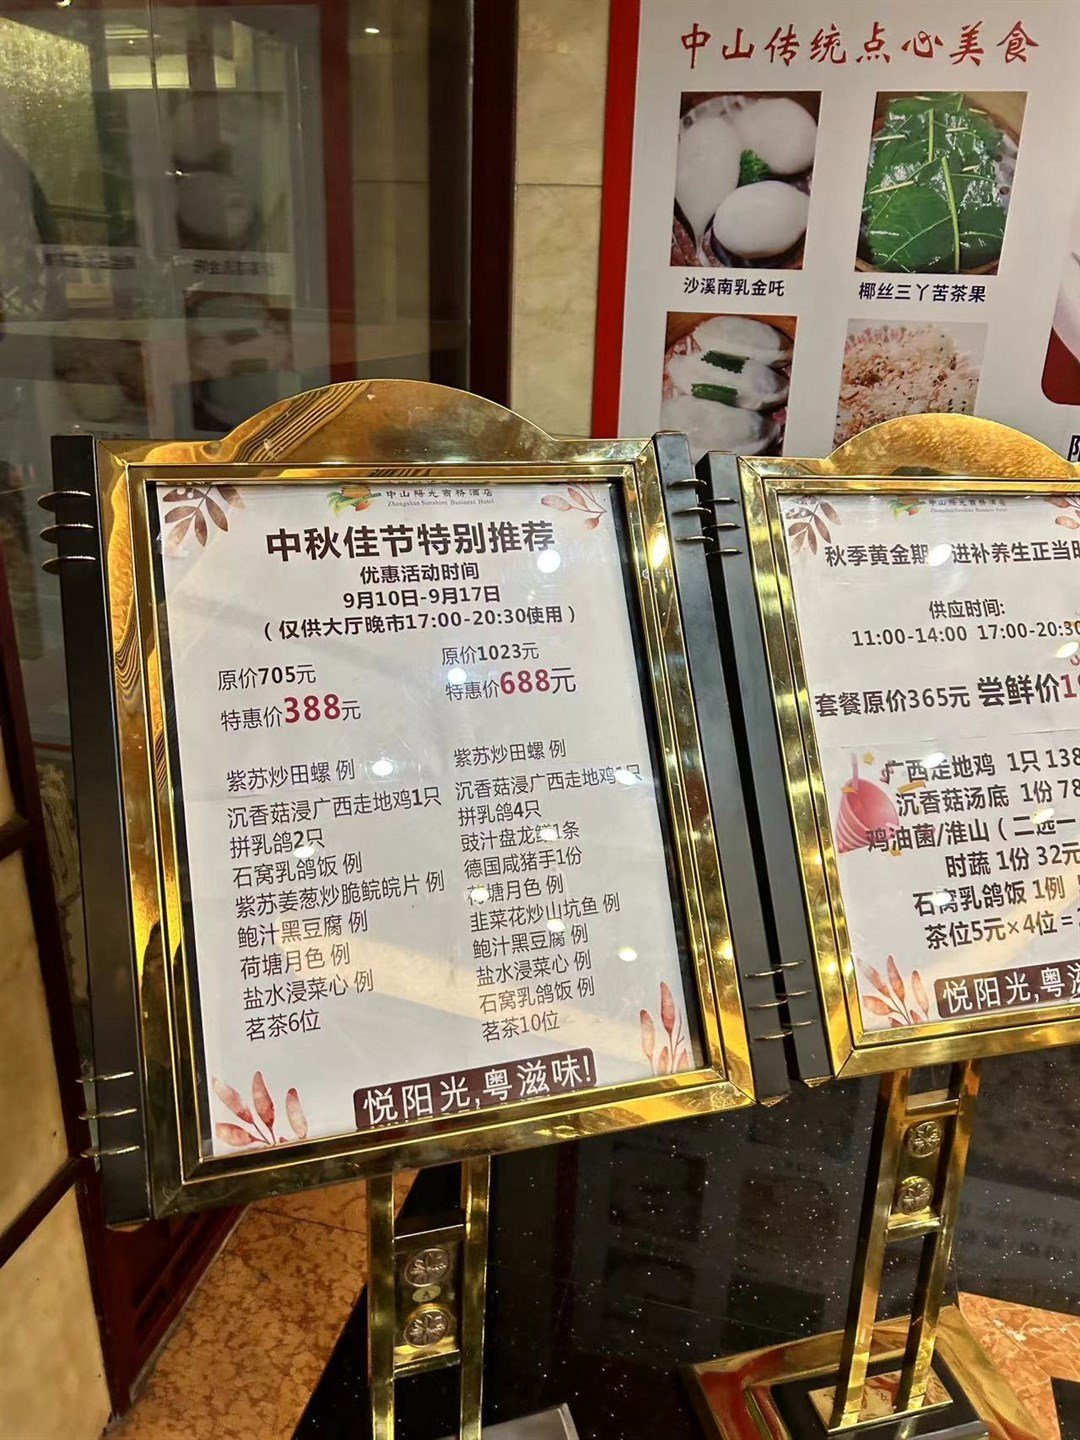 中山传统点心美食
沙溪南乳金吒
椰丝三丫苦茶果
中山陽光商務酒店
Zhongshan Sunshine Business Hotel
中秋佳节特别推荐
优惠活动时间
9月10日-9月17日
（仅供大厅晚市17:00-20:30使用）
原价705元
特惠价388元
紫苏炒田螺 例
沉香菇浸广西走地鸡1只
拼乳鸽2只
石窝乳鸽饭 例
紫苏姜葱炒脆鲩皖片 例
鲍汁黑豆腐 例
荷塘月色 例
盐水浸菜心 例
茗茶6位
原价1023元
特惠价688元
紫苏炒田螺 例
沉香菇浸广西走地鸡1只
拼乳鸽4只
豉汁盘龙鳝1条
德国咸猪手1份
荷塘月色 例
韭菜花炒山坑鱼 例
鲍汁黑豆腐 例
盐水浸菜心 例
石窝乳鸽饭 例
茗茶10位
悦阳光,粤滋味!
中山陽光商務酒店
Zhongshan Sunshine Business Hotel
秋季黄金期 进补养生正当时
供应时间:
11:00-14:00 17:00-20:30
套餐原价365元 尝鲜价
广西走地鸡 1只 138
沉香菇汤底 1份 78
鸡油菌/淮山（二选一
时蔬 1份 32元
石窝乳鸽饭 1例
茶位5元×4位=
悦阳光,粤滋